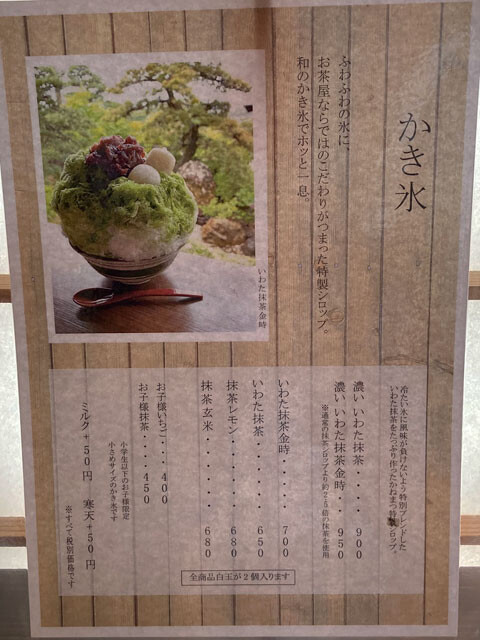 かき氷
ふわふわの氷に、
お茶屋ならではのこだわりがつまった特製シロップ。
和のかき氷でホッと一息。
いわた抹茶金時
冷たい氷に風味が負けないよう特別ブレンドした
いわた抹茶をたっぷり使ったかねまつ特製シロップ。
濃い いわた抹茶・・・・900
濃い いわた抹茶金時・・950
※通常の抹茶シロップより約2.5倍の抹茶を使用
いわた抹茶金時・・・・・700
いわた抹茶・・・・・・・650
抹茶レモン・・・・・・・680
抹茶玄米・・・・・・・・680
全商品白玉が2個入ります
お子様いちご・・・400
お子様抹茶・・・・450
小学生以下のお子様限定
小さめサイズのかき氷です
ミルク+50円 寒天+50円
※すべて税別価格です